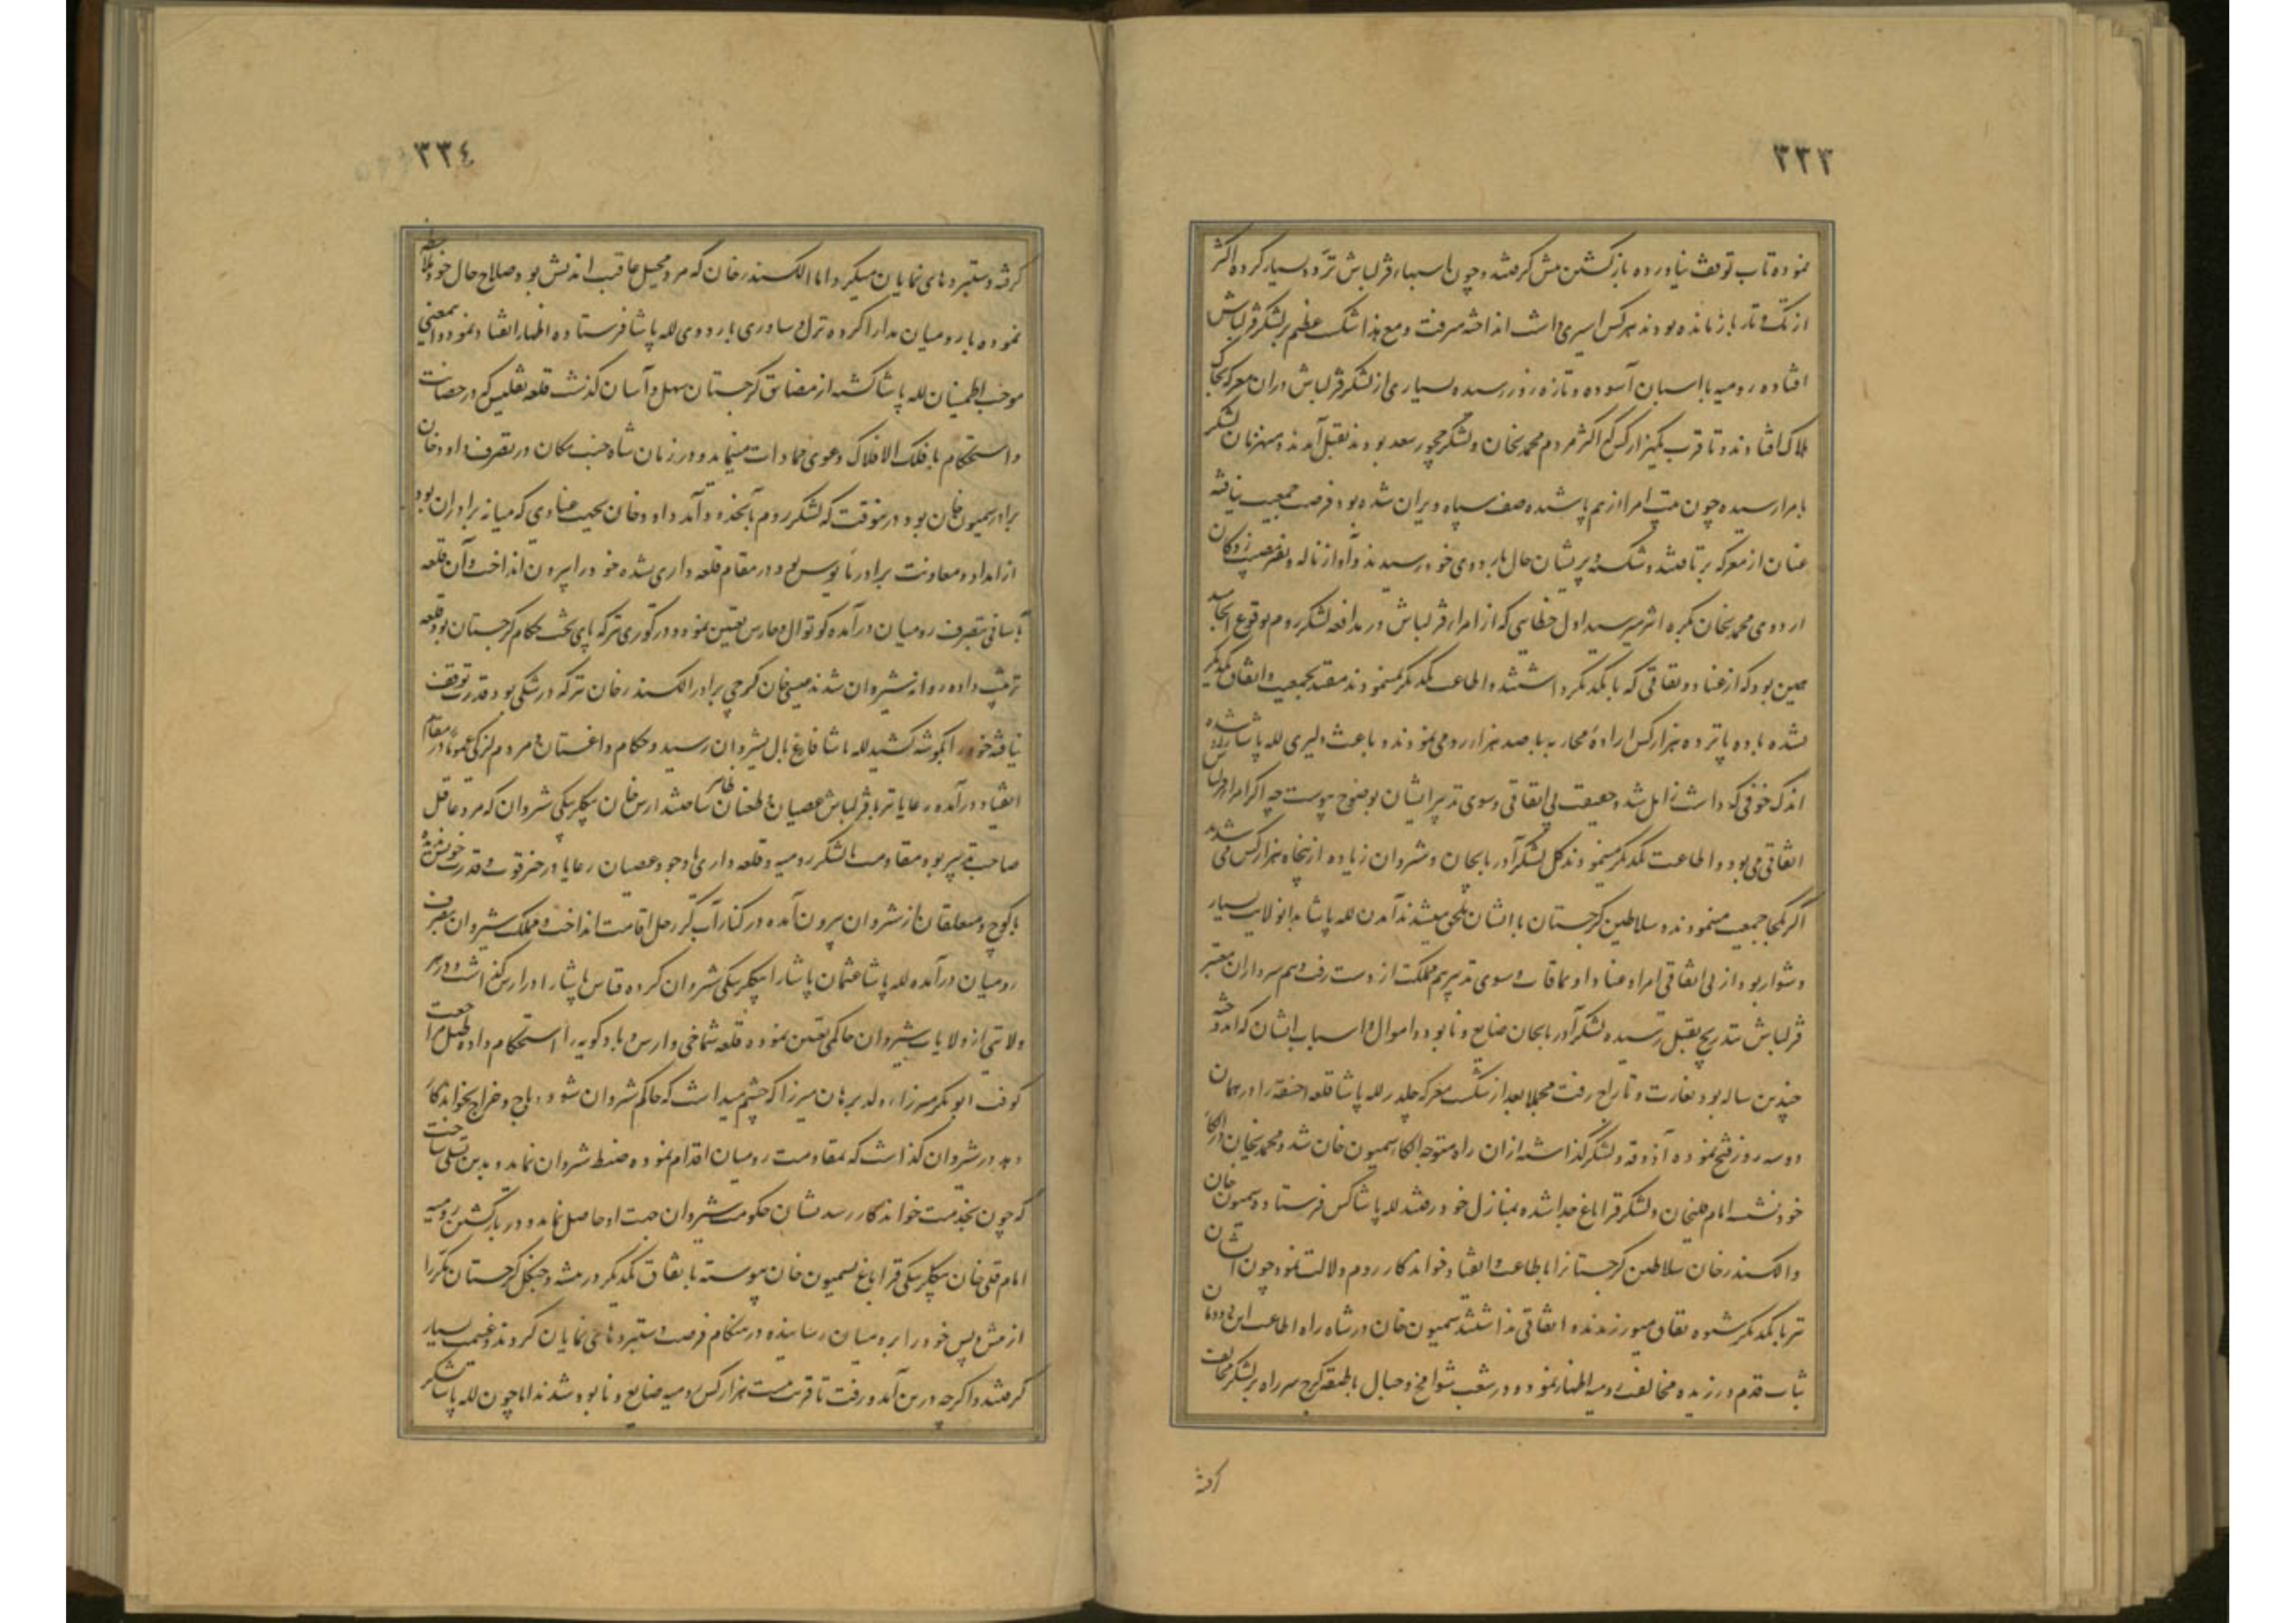 ۳۳۳
نموده تاب توقف نیاورده بازگشتن پیش گرفتند و چون اسبهاء قزلباش تردد بسیار کرده اکثر
از تک و تاز بازمانده بودند هر کس اسیری داشت انداخته میرفت و مع هذا شکست عظیم بر لشکر قزلباش
افتاده رومیه با اسبان آسوده و تازه زور رسیده بسیاری از لشکر قزلباش در آن معرکه بخاک
هلاک افتادند و تا قریب یکهزار کس که اکثر مردم محمدیخان و لشکر چخور سعد بودند بقتل آمدند و منهزمان لشکر
بامرا رسیده چون هیئت امرا از هم پاشیده صف سپاه ویران شده بود فرصت جمعیت نیافته
عنان از معرکه برتافتند و شکسته و پریشان حال باردوی خود رسیدند و آواز ناله و نفیر مصیبت زدکان
اردوی محمدیخان بکره اثیر میرسید اول خطایی که از امراء قزلباش در مدافعه لشکر روم بوقوع انجامید
همین بود که از عناد و نفاقی که با یکدیگر داشتند و اطاعت یکدیگر نمینمودند مقید بجمعیت و اتفاق یکدیگر
نشده با ده پانزده هزار کس اراده محاربه با صد هزار رومی نمودند و باعث دلیری لله پاشا شده
اندک خوفی که داشت زایل شد و حقیقت بی اتفاقی و سوی تدبیر ایشان بوضوح پیوست چه اگر امرا را
اتفاقی می بود و اطاعت یکدیگر مینمودند کل لشکر آذربایجان و شروان زیاده از پنجاه هزار کس می شدند
اگر یکجا جمعیت مینمودند و سلاطین گرجستان با ایشان ملحق میشدند آمدن لله پاشا بدانولایت بسیار
دشوار بود از بی اتفاقی امرا و عناد و نفاق و سوی تدبیر هم مملکت از دست رفت و هم سرداران معتبر
قزلباش بتدریج بقتل رسیده لشکر آذربایجان ضایع و نابود و اموال و اسباب ایشان که اندوخته
چندین ساله بود بغارت و تاراج رفت مجملا بعد از شکست معرکه چلدر لله پاشا قلعه اخسقه را در همان
دو سه روز فتح نموده آذوقه و لشکر گذاشته از آن راه متوجه الکاء سمیون خان شد و محمدیخان در الکاء
خود نشسته امام قلیخان و لشکر قراباغ جدا شده بمنازل خود رفتند لله پاشا کس فرستاده سمیون خان
و الکسندر خان سلاطین گرجستانرا باطاعت و انقیاد خواندکار روم دلالت نمود چون ایشان
نیز با یکدیگر شیوه نفاق میورزیدند و اتفاقی نداشتند سمیون خان در شاه راه اطاعت این دودمان
ثابت قدم ورزیده مخالفت رومیه اظهار نمود و در شعب شوامخ و جبال با طبقه کرج سر راه بر لشکر مخالف
گرفته
۳۳٤
گرفته دستبردهای نمایان میکرد اما الکسندر خان که مرد محیل عاقبت اندیش بود صلاح حال خود ملاحظه
نموده با رومیان مدارا کرده نزل و ساوری باردوی لله پاشا فرستاده اظهار انقیاد نمود و اینمعنی
موجب اطمینان لله پاشا گشته از مضایق گرجستان سهل و آسان گذشت قلعه تفلیس که در حصانت
و استحکام با فلک الافلاک دعوی مساوات مینماید و در زمان شاه جنت مکان در تصرف داود خان
برادر سمیون خان بود درینوقت که لشکر روم بآنحدود آمد داود خان بجهت عنادی که میانه برادران بود
از امداد و معاونت برادر مأیوس بود در مقام قلعه داری نشده خود را بیرون انداخت و آن قلعه
بآسانی بتصرف رومیان درآمده کوتوال و حارس تعیین نمود و در کوری نیز که پای تخت حکام گرجستان بود قلعه
ترتیب داده روانه شیروان شدند عیسی خان گرجی برادر الکسندر خان نیز که در شکی بود قدرت توقف
نیافته خود را بگوشه کشید لله پاشا فارغ بال بشیروان رسید و حکام داغستان و مردم لزکی عموما در مقام
انقیاد درآمده رعایا نیز با قزلباش عصیان و طغیان ظاهر ساختند ارس خان بیکلربیکی شروان که مرد عاقل
صاحب تدبیر بود مقاومت با لشکر رومیه و قلعه داری با وجود عصیان رعایا در حیز قوت و قدرت خود ندیده
با کوچ و متعلقان از شروان بیرون آمده در کنار آب کر رحل اقامت انداخت و مملکت شیروان بتصرف
رومیان درآمده لله پاشا عثمان پاشا را بیکلربیکی شروان کرده قیاس پاشا را در ارس گذاشت و در هر
ولایتی از ولایات شیروان حاکمی تعیین نموده قلعه شماخی و ارس و بادکوبه را استحکام داده طبل مراجعت
کوفت ابوبکر میرزا ولد برهان میرزا که چشم میداشت که حاکم شروان شود و باج و خراج بخواندکار
دهد در شروان گذاشت که بمقاومت رومیان اقدام نموده ضبط شروان نماید و بدین تسلی ساخت
که چون بخدمت خواندکار رسد نشان حکومت شیروان جهت او حاصل نماید و در بازگشتن رومیه
امام قلی خان بیکلربیکی قراباغ بسمیون خان پیوسته باتفاق یکدیگر در بیشه و جنگل گرجستان مکررا
از پیش و پس خود را برومیان رسانیده در هنگام فرصت دستبردهای نمایان کردند و غنیمت بسیار
گرفتند و اگرچه درین آمد و رفت تا قریب بیست هزار کس رومیه ضایع و نابود شدند اما چون لله پاشا لشکر